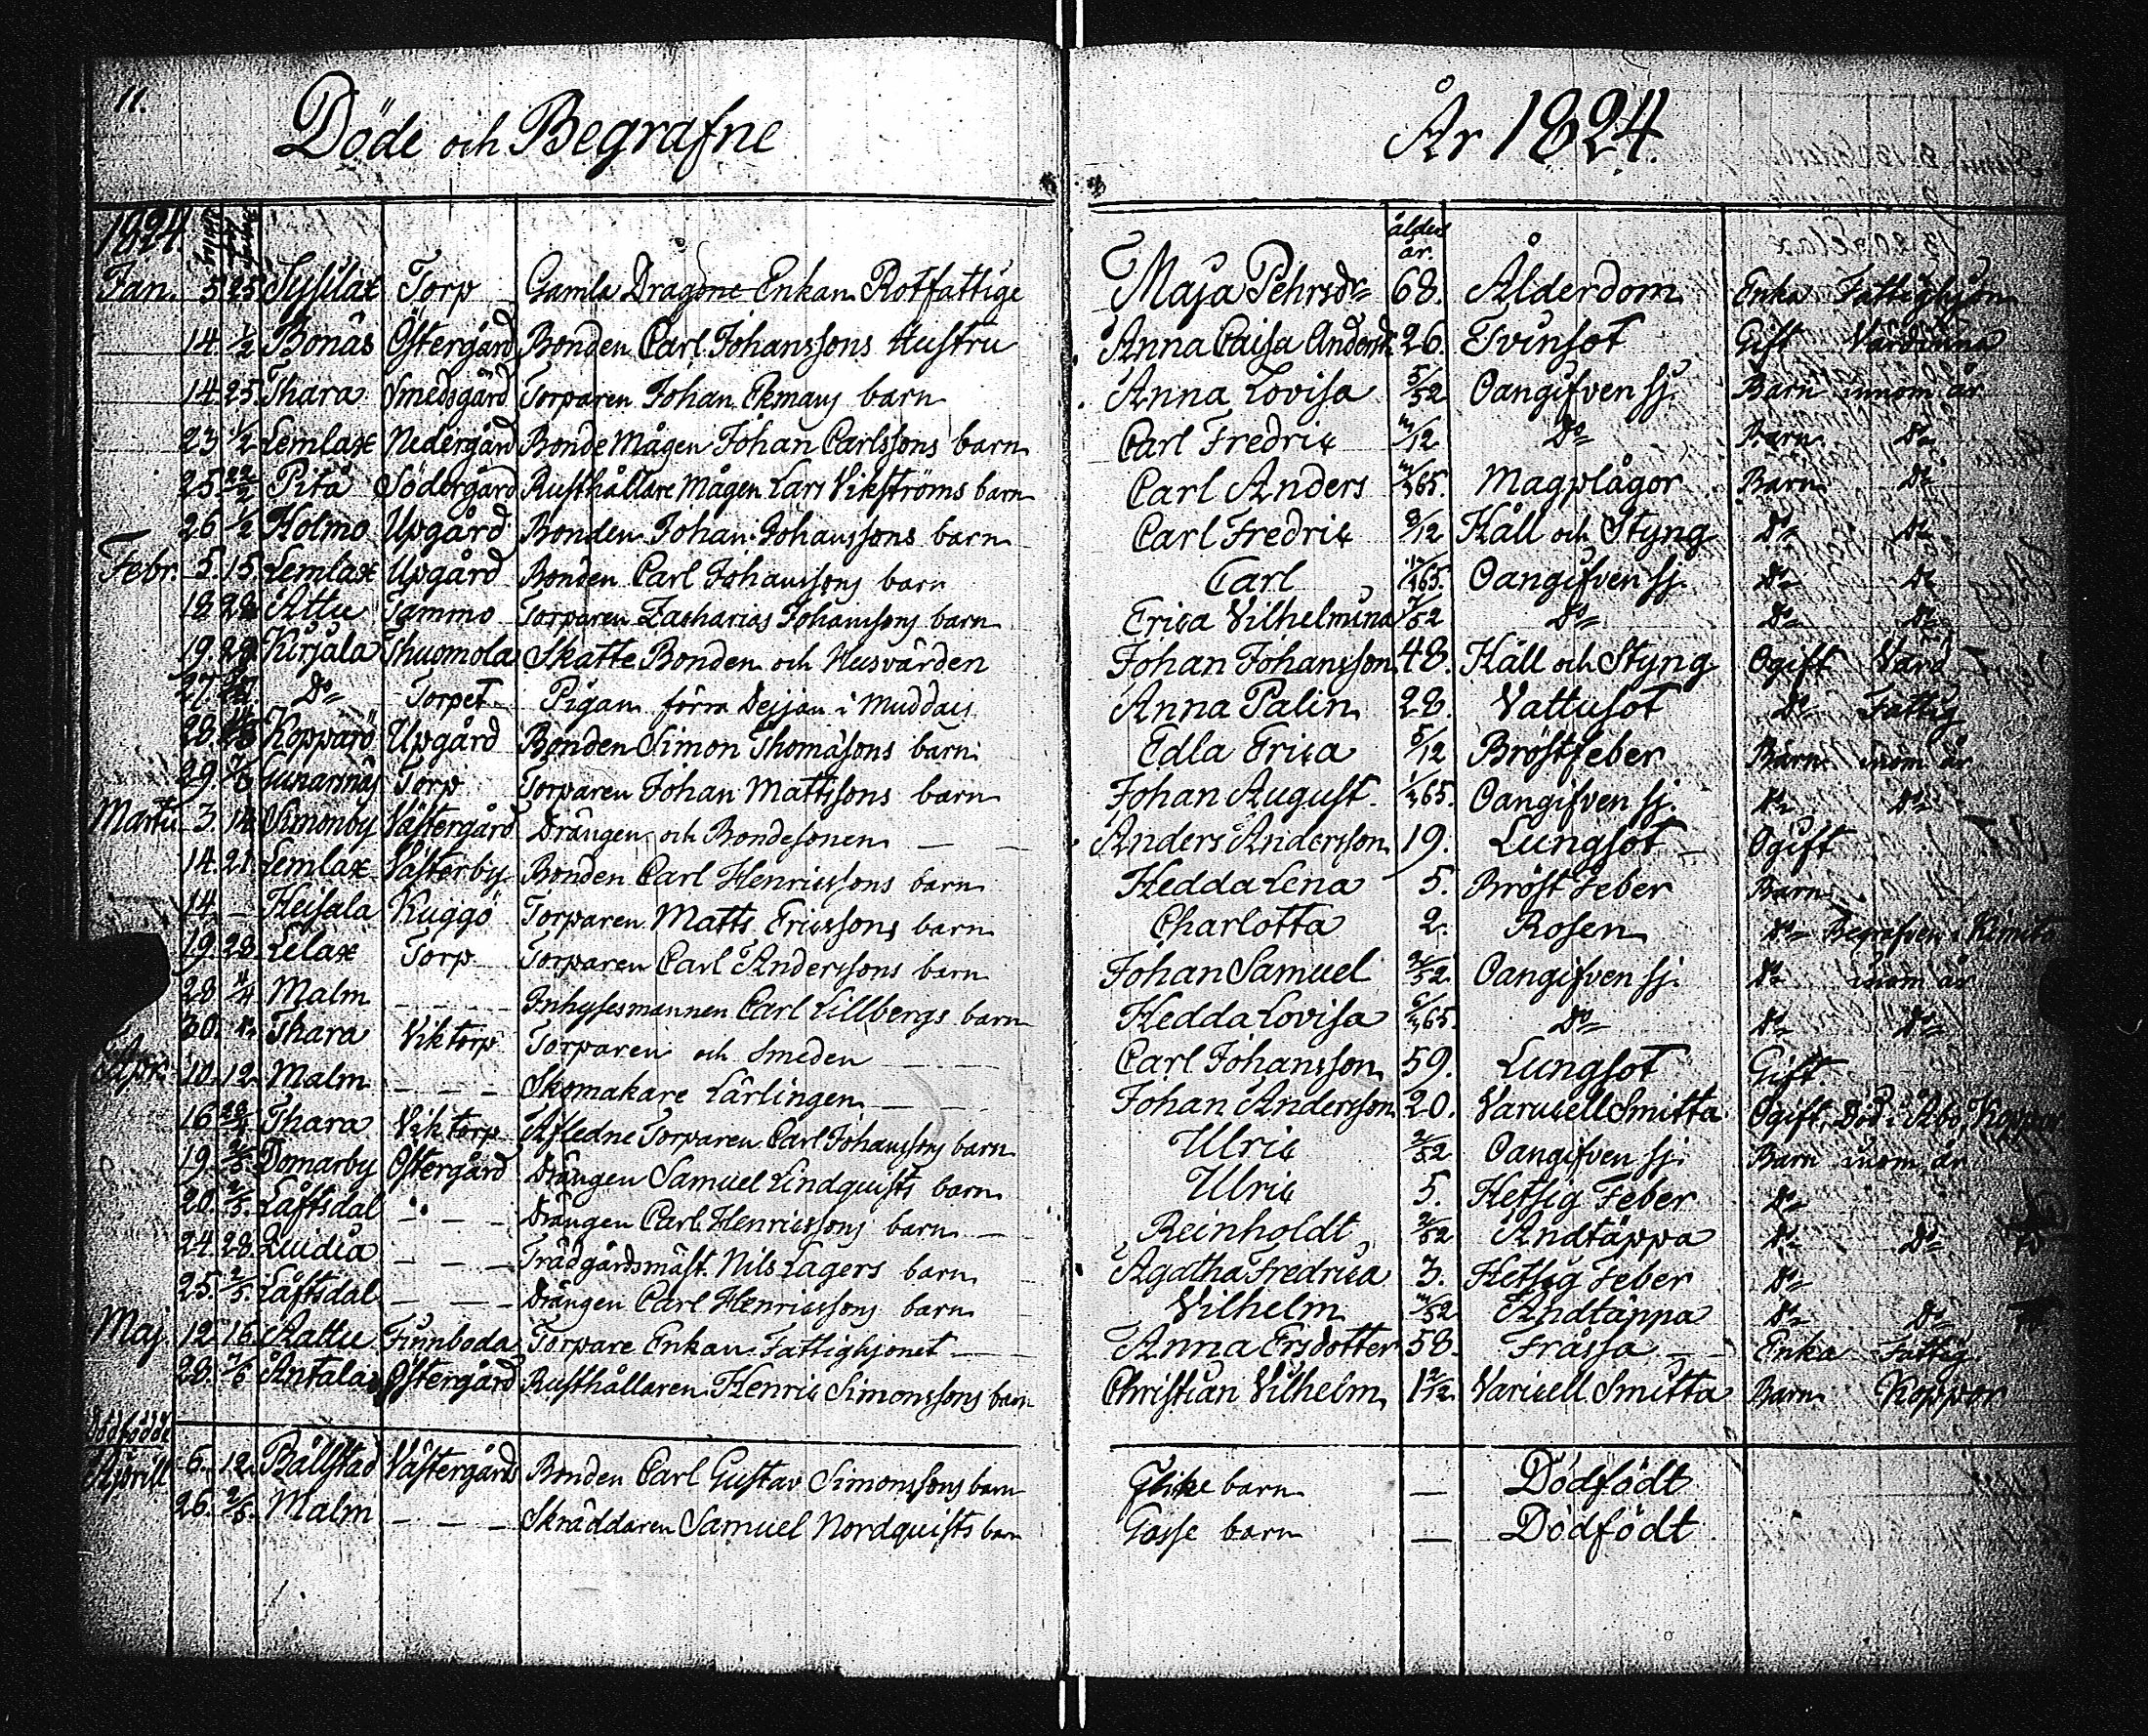 11.
Döde och Begrafne År 1824.
1824 ålder år.
Jan. 5. 25. Sysilax Torp Gamla Dragone Enkan Rotfattige Maja Pehrsdr 68. Ålderdom Enka Fattighjon
14. 1/2 Bonäs Östergård Bonden Carl Johanssons Hustru Anna Caisa Andersdr 26. Tvinsot Gift Värdinna
14. 25. Thara Smedsgård Torparen Johan Ekmans barn Anna Lovisa 5/52 Oangifven sj. Barn innom år
23 1/2 Lemlax Nedergård Bonde Mågen Johan Carlssons barn Carl Fredric /12 Do Barn Do
25. 22/2 Pitå Södergård Rusthållare Mågen Lars Vikströms barn Carl Anders /365. Magplågor Barn Do
26 1/2 Holmo Upgård Bonden Johan Johanssons barn Carl Fredric 8/12 Håll och Styng Do Do
Febr. 5. 15. Lemlax Upgård Bonden Carl Johanssons barn Carl /365. Oangifven sj. Do Do
18 28 Attu Jammo Torparen Zacharias Johanssons barn Erica Vilhelmina 7/52 Do Do Do
19. 29 Kirjala Thuomola Skatte Bonden och Husvärden Johan Johansson 48. Håll och Styng Ogift Värd
27. Do Torpet Pigan förra Dejjan i Muddais Anna Palin 28. Vattusot Do Fattig
28. Kopparö Upgård Bonden Simon Thomasons barn Edla Erica 5/12 Bröstfeber Barn inom år
29. Gunarnäs Torp Torparen Johan Mattssons barn Johan August 1/365. Oangifven sj. Do Do
Martii 3. 14 Simonby Västergård Drängen och Bondesonen Anders Andersson 19. Lungsot Ogift
14. 21. Lemlax Västerby Bonden Carl Henricssons barn Hedda Lena 5. Bröst Feber Barn
14. – Heisala Kuggö Torparen Matts Ericssons barn Charlotta 2. Rosen Do Begrafven i Kimito
19. 28. Lelax Torp Torparen Carl Anderssons barn Johan Samuel 2/52. Oangifven sj. Do inom år
28 /4 Malm – – – Inhysesmannen Carl Lillbergs barn Hedda Lovisa 6/365. Do Do Do
30. Thara Viktorp Torparen och Smeden Carl Johansson 59. Lungsot Gift.
Apr. 10. 12. Malm – – – Skomakare Lärlingen Johan Andersson 20. Varicell Smitta Ogift, Död i Åbo, Koppor
16 28/4 Thara Viktorp Afledne Torparen Carl Johanssons barn Ulric 2/52 Oangifven sj. Barn inom år
19. 2/5. Domarby Östergård Drängen Samuel Lindquists barn Ulric 5. Hetsig Feber Do
20. 2/5. Låftsdal – – – Drängen Carl Henricssons barn Reinholdt 2/52 Andtäppa Do Do
24. 28. Qvidia – – – Trädgårdsmäst. Nils Lagers barn Agatha Fredrica 3. Hetsig Feber Do
25. 2/5. Låftsdal – – – Drängen Carl Henricssons barn Vilhelm /52 Andtäppa Do Do
Maj. 12. 16. Rattu Finnboda Torpare Enkan Fattighjonet Anna Ersdotter 58. Fråssa Enka Fattig
28. /6 Antala Östergård Rusthållaren Henric Simonssons barn Christian Vilhelm 1 2/12. Varicell Smitta Barn Koppor
Dödfödde
Aprill 6. 12. Bållstad Västergård Bonden Carl Gustav Simonssons barn Flike barn — Dödfödt
26. 2/5. Malm – – – Skräddaren Samuel Nordquists barn Gosse barn — Dödfödt